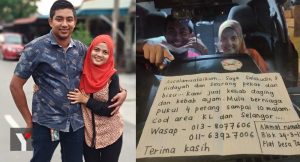 Assalamualaikum... Saya Salahudin &
hidayah dan seorang pekak dan
bisu.. Kami jual kebab daging
dan kebab ayam. Mula berniaga
pukul 4 petang sampai 10 malam
cod area KL dan Selangor...
Wasap - 013-8077606
011-63927006
Terima kasih
Blok
Flat Desa